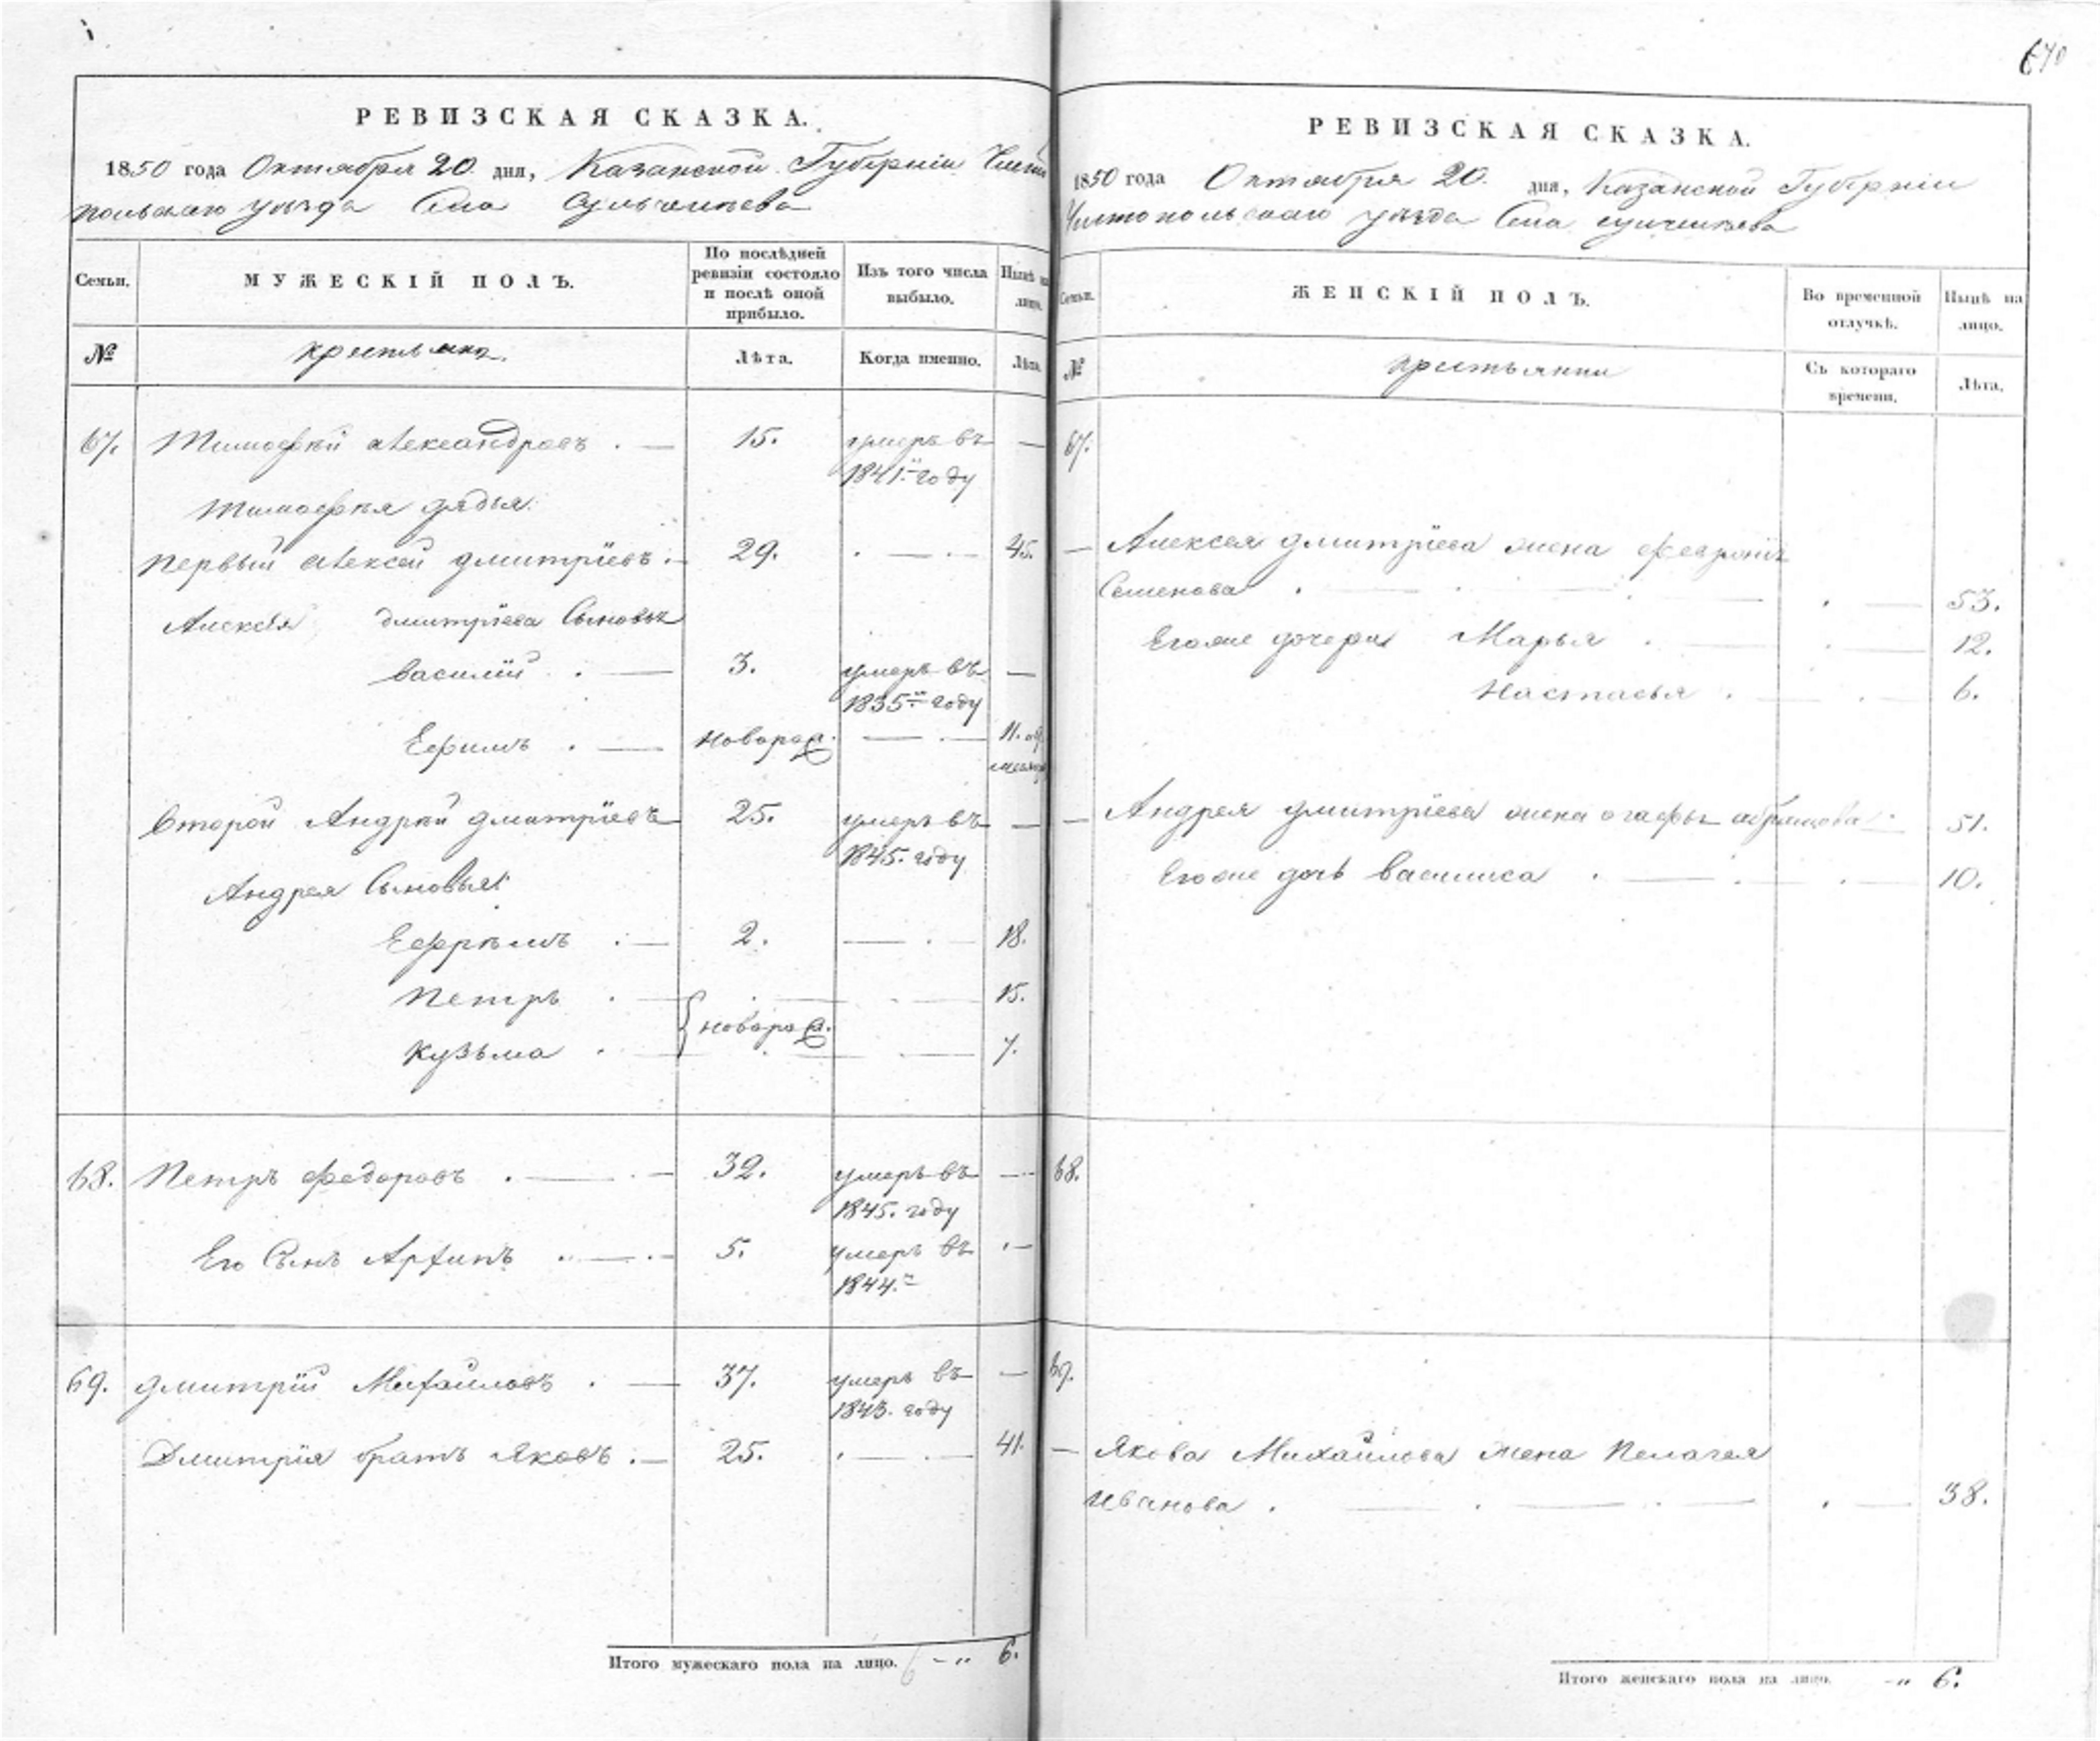 670
РЕВИЗСКАЯ СКАЗКА.
1850 года Октября 20 дня, Казанской Губерніи Чисто
польскаго уѣзда Села
Семьи.
МУЖЕСКІЙ ПОЛЪ.
По послѣдней ревизіи состояло и послѣ оной прибыло.
Изъ того числа выбыло.
Нынѣ на лицо.
№
крестьяне.
Лѣта.
Когда именно.
Лѣта.
67. Тимофей Александровъ . — 15. умеръ въ —
1841.го году
Тимофея дядья:
Первый Алексей Дмитріевъ . — 29. . — . — 45.
Алексѣя Дмитріева Сыновья
Василій . — 3. умеръ въ —
1835.го году
Ефимъ . — новорож. — . — 11.
Второй Андрей Дмитріевъ — 25. умеръ въ —
1845. году
Андрея Сыновья:
Ефрѣмъ . — 2. — . — 18.
Петръ . — . — . — 15.
новорож.
Кузьма . — . — . — 7.
68. Петръ Федоровъ . — . — 32. умеръ въ —
1845. году
Его Сынъ Архипъ . — . — 5. умеръ въ . —
1844.го
69. Дмитрій Михайловъ . — 37. умеръ въ —
1843. году
Дмитрія братъ Яковъ . — 25. . — . — 41.
Итого мужескаго пола на лицо. 6 — „ 6.
РЕВИЗСКАЯ СКАЗКА.
1850 года Октября 20. дня, Казанской Губерніи
Чистопольскаго уѣзда Села
Семьи.
ЖЕНСКІЙ ПОЛЪ.
Во временной отлучкѣ.
Нынѣ на лицо.
№
крестьянки
Съ котораго времени.
Лѣта.
67.
— Алексея Дмитріева жена Февронія
Семенова . — . — . — . — 53.
Егоже дочери Марья . — . — 12.
Настасья . — . — 6.
— Андрея Дмитріева жена 51.
Егоже дочь Василиса . — . — . — 10.
68.
69.
— Якова Михайлова жена Пелагея
Иванова . — . — . — . — 38.
Итого женскаго пола на лицо. — „ 6.